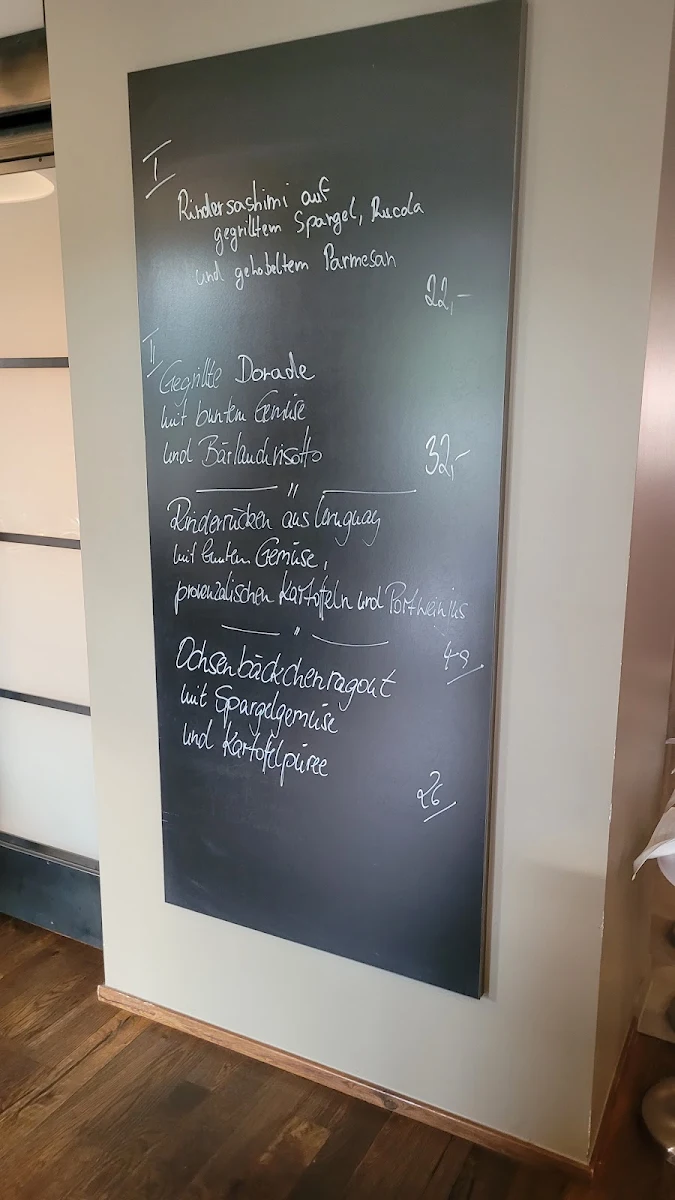 I
Rindersashimi auf
gegrilltem Spargel, Rucola
und gehobeltem Parmesan
22,-
II
Gegrillte Dorade
mit buntem Gemüse
und Bärlauchrisotto
32,-
"
Rinderrücken aus Uruguay
mit buntem Gemüse,
provenzalischen Kartoffeln und Portweinjus
49
"
Ochsenbäckchenragout
mit Spargelgemüse
und Kartoffelpüree
26